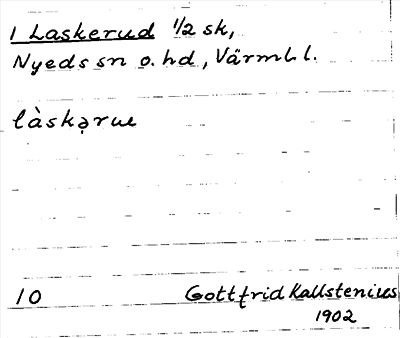 1 Laskerud 1/2 sk,
Nyeds sn o. hd, Värml. l.
làskəru̶e
10 Gottfrid Kallstenius
1902